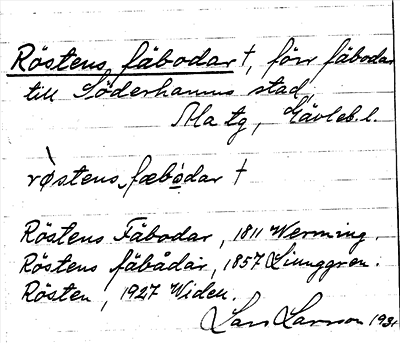 Röstens fäbodar †, förr fäbodar
till Söderhamns stad,
Ma tg, Gävleb. l.
rö̀stens fæbo̱dar †
Röstens Fäbodar, 1811 Werming.
Röstens fäbådar, 1857 Ljunggren.
Rösten, 1927 Widen.
Lars Larsson 193